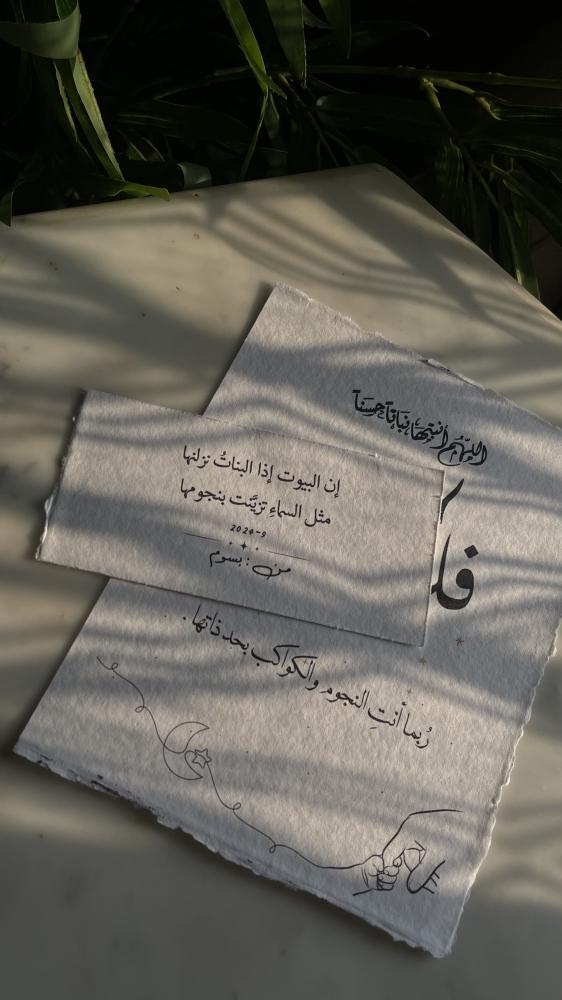 اللهم أنبتها نباتاً حسناً
فل
إن البيوت إذا البناتُ نزلنها
مثل السماءِ تزيَّنت بنجومها
2024-9
من : بسوم
رُبما أنتِ النجوم والكواكب بحد ذاتها .